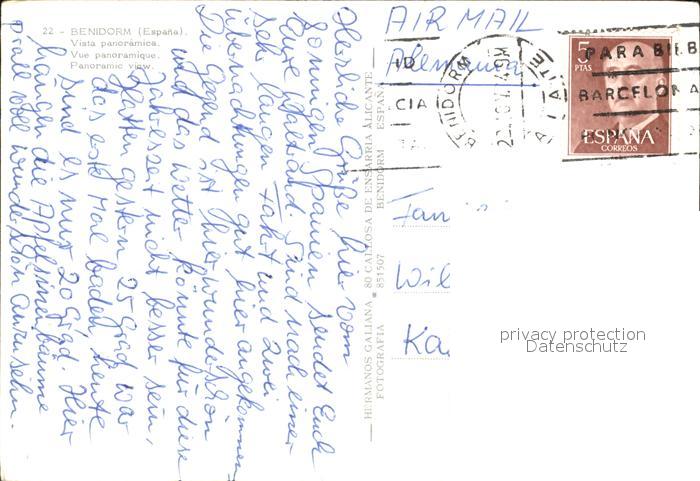 22 - BENIDORM (España).
Vista panorámica.
Vue panoramique.
Panoramic view.
Herzliche Grüße hier vom
sonnigen Spanien sendet Euch
Eure Sind nach einer
sehr langen Fahrt und zwei
Übernachtungen gut hier angekommen.
Die Gegend ist hier wunderschön
und das Wetter könnte für diese
Jahreszeit nicht besser sein,
hatten gestern 25 Grad, war
das erste Mal baden, heute
sind es nur 20 Grad. Hier
hängen die Apfelsinenbäume
prall voll wunderschön anzusehn.
HERMANOS GALIANA 80 CALLOSA DE ENSARRIA ALICANTE
FOTOGRAFIA 851507 BENIDORM ESPAÑA
AIR MAIL
Alemania
BENIDORM
ALICANTE
PARA BILB
BARCELONA
5
PTAS
ESPAÑA
CORREOS
Fam
Wil
Ka
privacy protection
Datenschutz